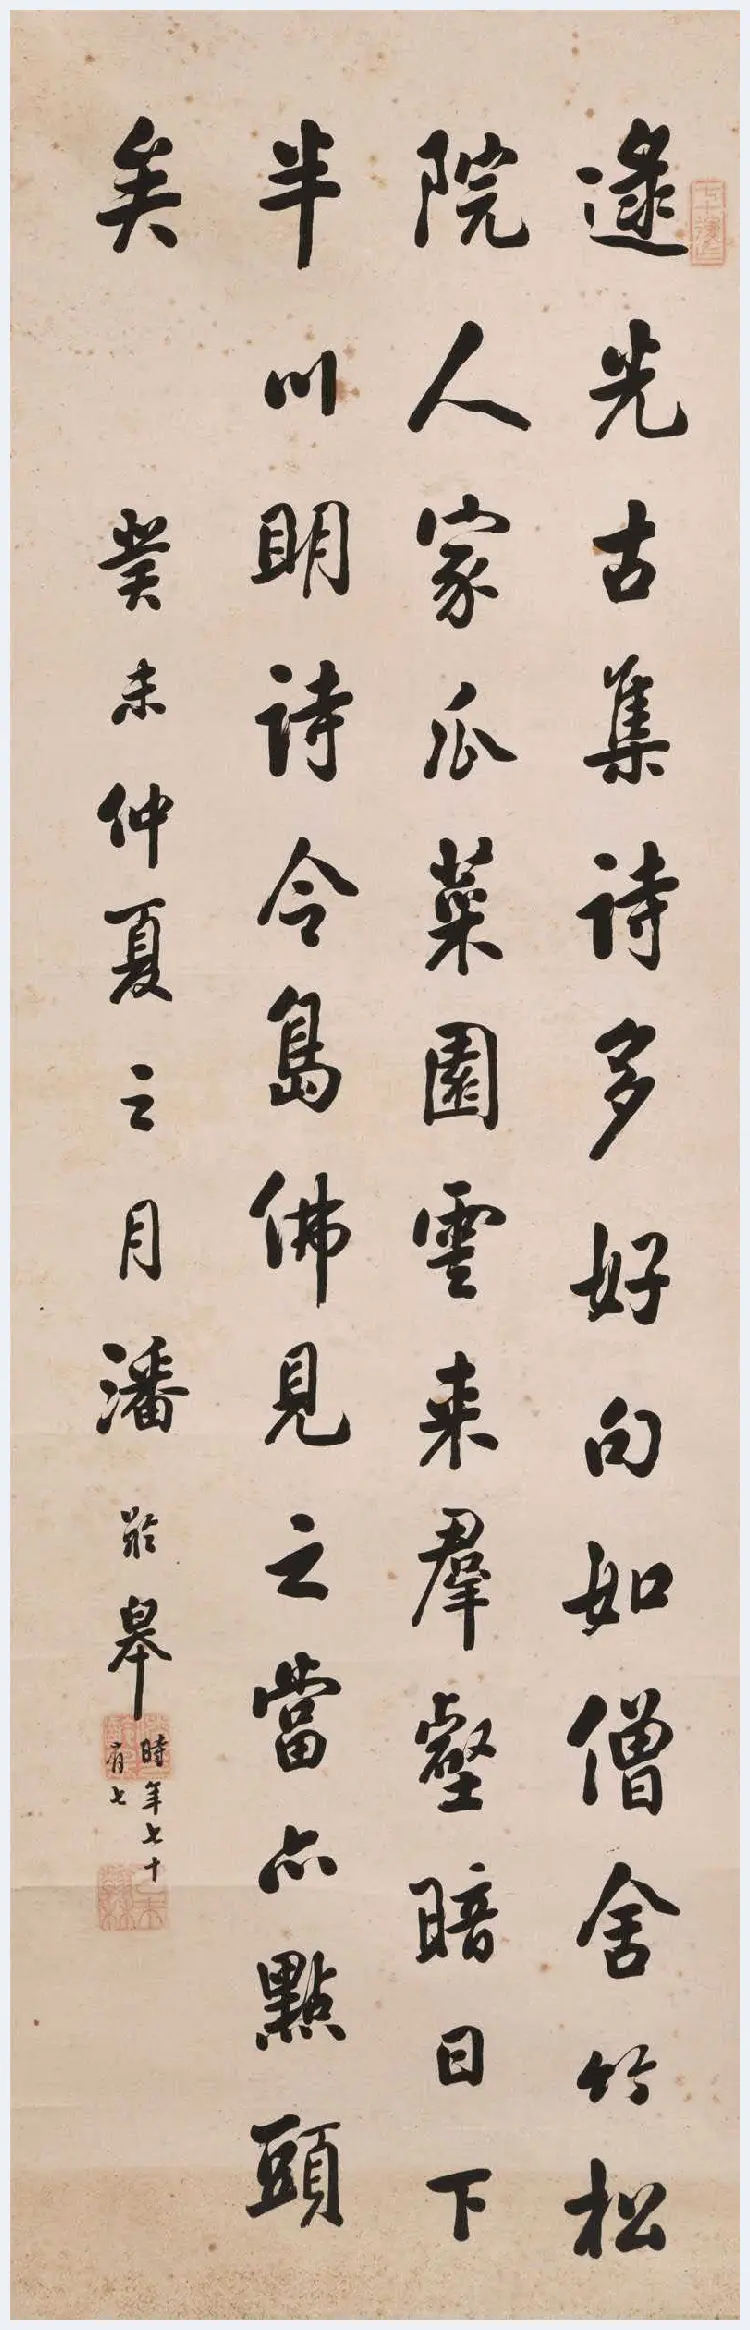 遂光古集詩多好句如僧舍竹松
院人家瓜菜園雲来羣壑暗日下
半川明詩令島佛見之當亦點頭
矣　癸未仲夏之月潘齡皋
時年七十
有七